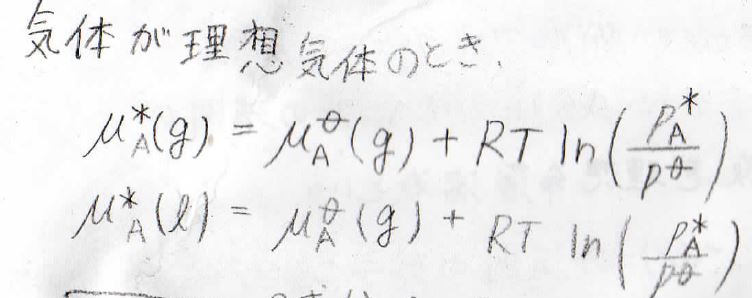 気体が理想気体のとき、
μ*A(g) = μ⦵A(g) + RT ln(p*A/p⦵)
μ*A(l) = μ⦵A(g) + RT ln(p*A/p⦵)